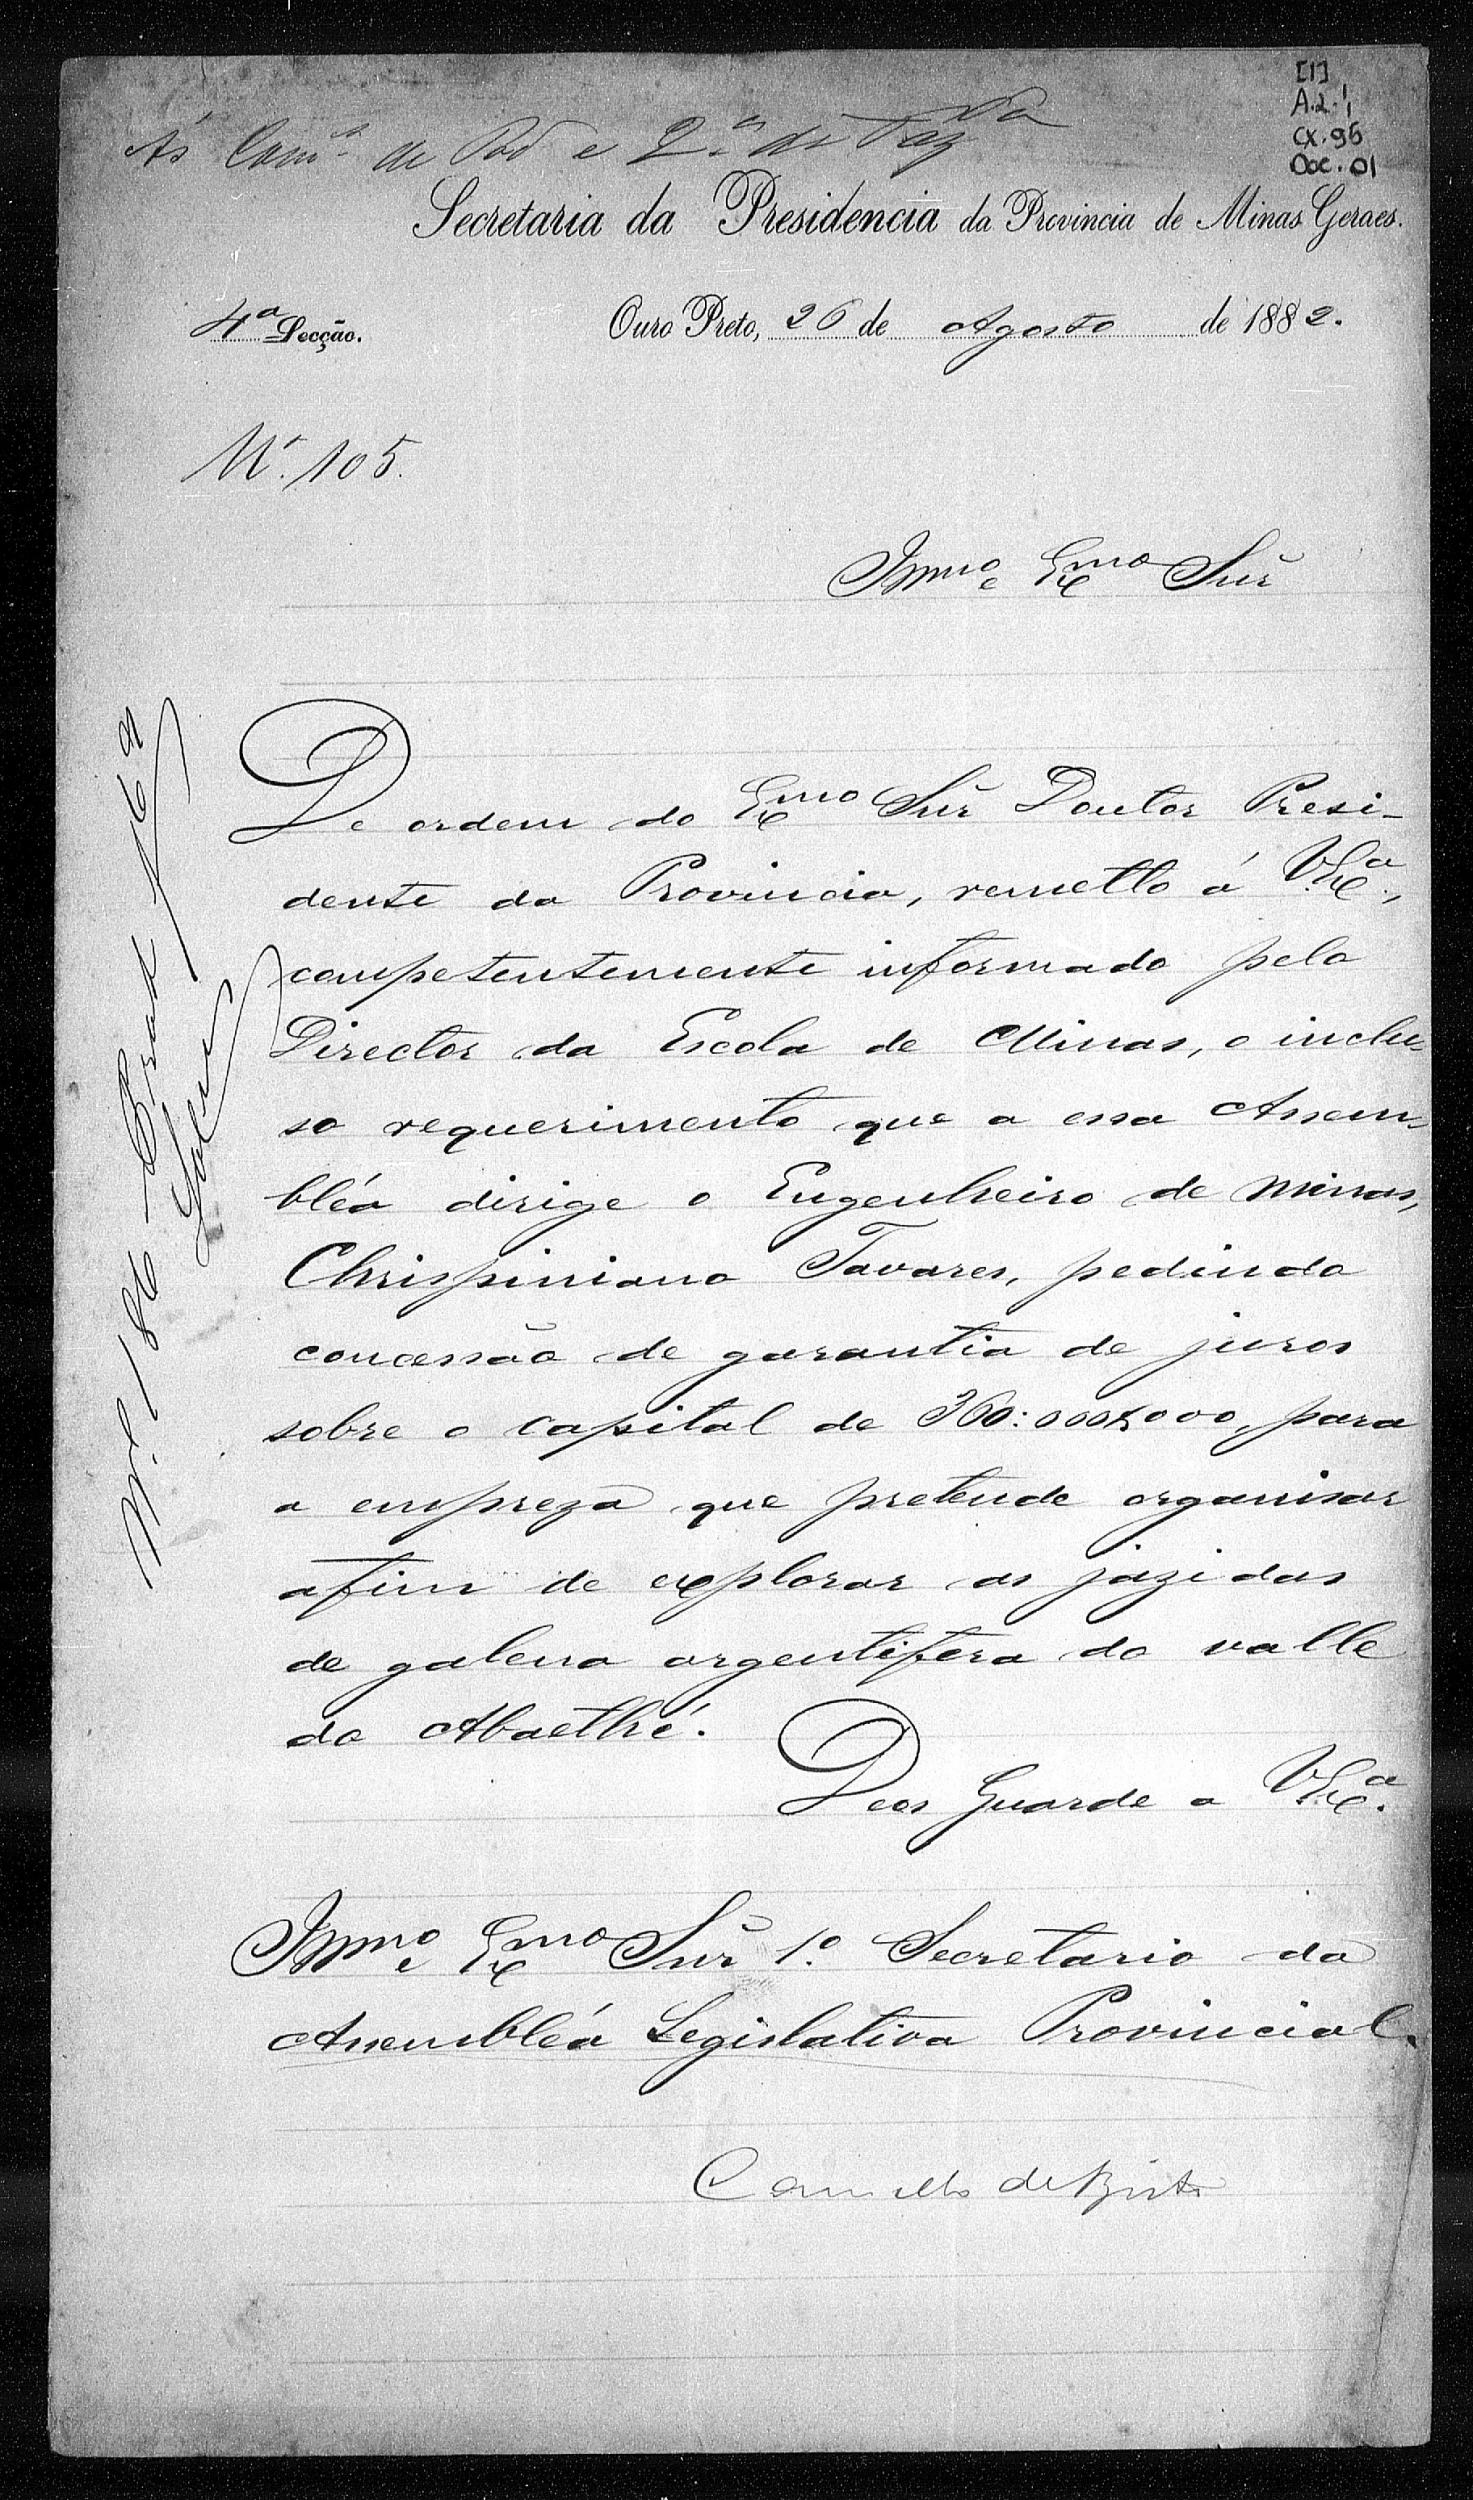 [1]
A.2.1
CX.96
Doc.01
Ás Com.s de e 2.a de Fazda
Secretaria da Presidencia da Provincia de Minas Geraes.
4a Secção. Ouro Preto, 26 de Agosto de 1882.
N.º 105.
Illmo e Exmo Snr
De ordem do Exmo Snr Doutor Presi-
dente da Provincia, remetto á V.Exa.,
competentemente informado pelo
Director da Escola de Minas, o inclu-
so requerimento que a essa Assem-
bléa dirige o Engenheiro de Minas,
Chrispiniano Tavares, pedindo
concessão de garantia de juros
sobre o capital de 360:000$000, para
a empreza que pretende organisar
afim de explorar as jazidas
de galena argentifera do valle
do Abaethé.
Deos Guarde a V.Exa.
Illmo e Exmo Snr 1.º Secretario da
Assembléa Legislativa Provincial.
Camillo de Brito